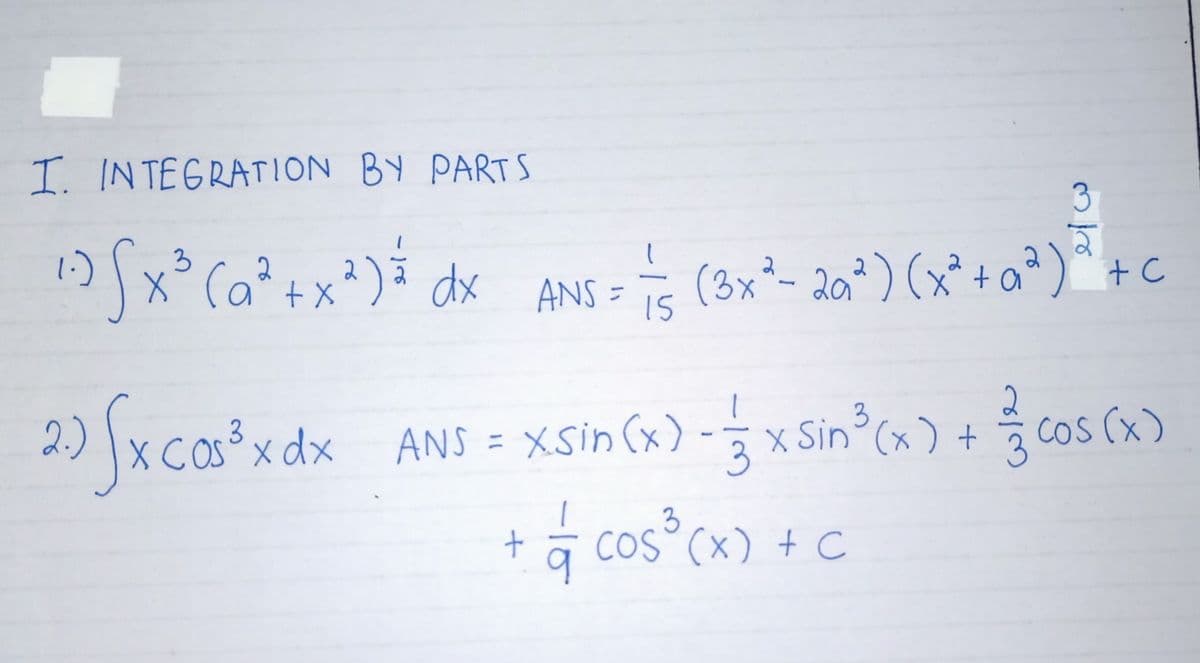 I. INTEGRATION BY PARTS
1.) ∫x³(a²+x²)^(1/2) dx ANS = 1/15 (3x²- 2a²)(x²+a²)^(3/2) + C
2.) ∫x cos³x dx ANS = x sin(x) - 1/3 x sin³(x) + 2/3 cos(x)
+ 1/9 cos³(x) + C